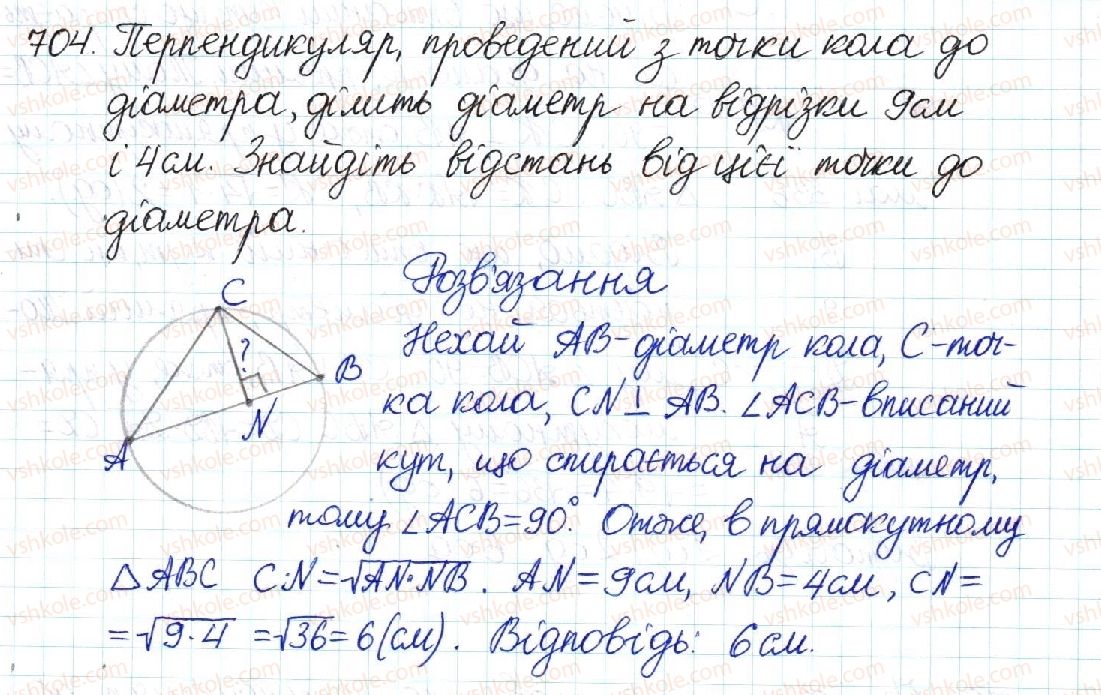 704. Перпендикуляр, проведений з точки кола до
діаметра, ділить діаметр на відрізки 9см
і 4см. Знайдіть відстань від цієї точки до
діаметра.
Розв'язання
C
?
B
N
A
Нехай AB-діаметр кола, C-точ-
ка кола, CN⊥AB. ∠ACB-вписаний
кут, що спирається на діаметр,
тому ∠ACB=90°. Отже, в прямокутному
△ABC CN=√AN·NB. AN=9см, NB=4см, CN=
=√9·4=√36=6(см). Відповідь: 6см.